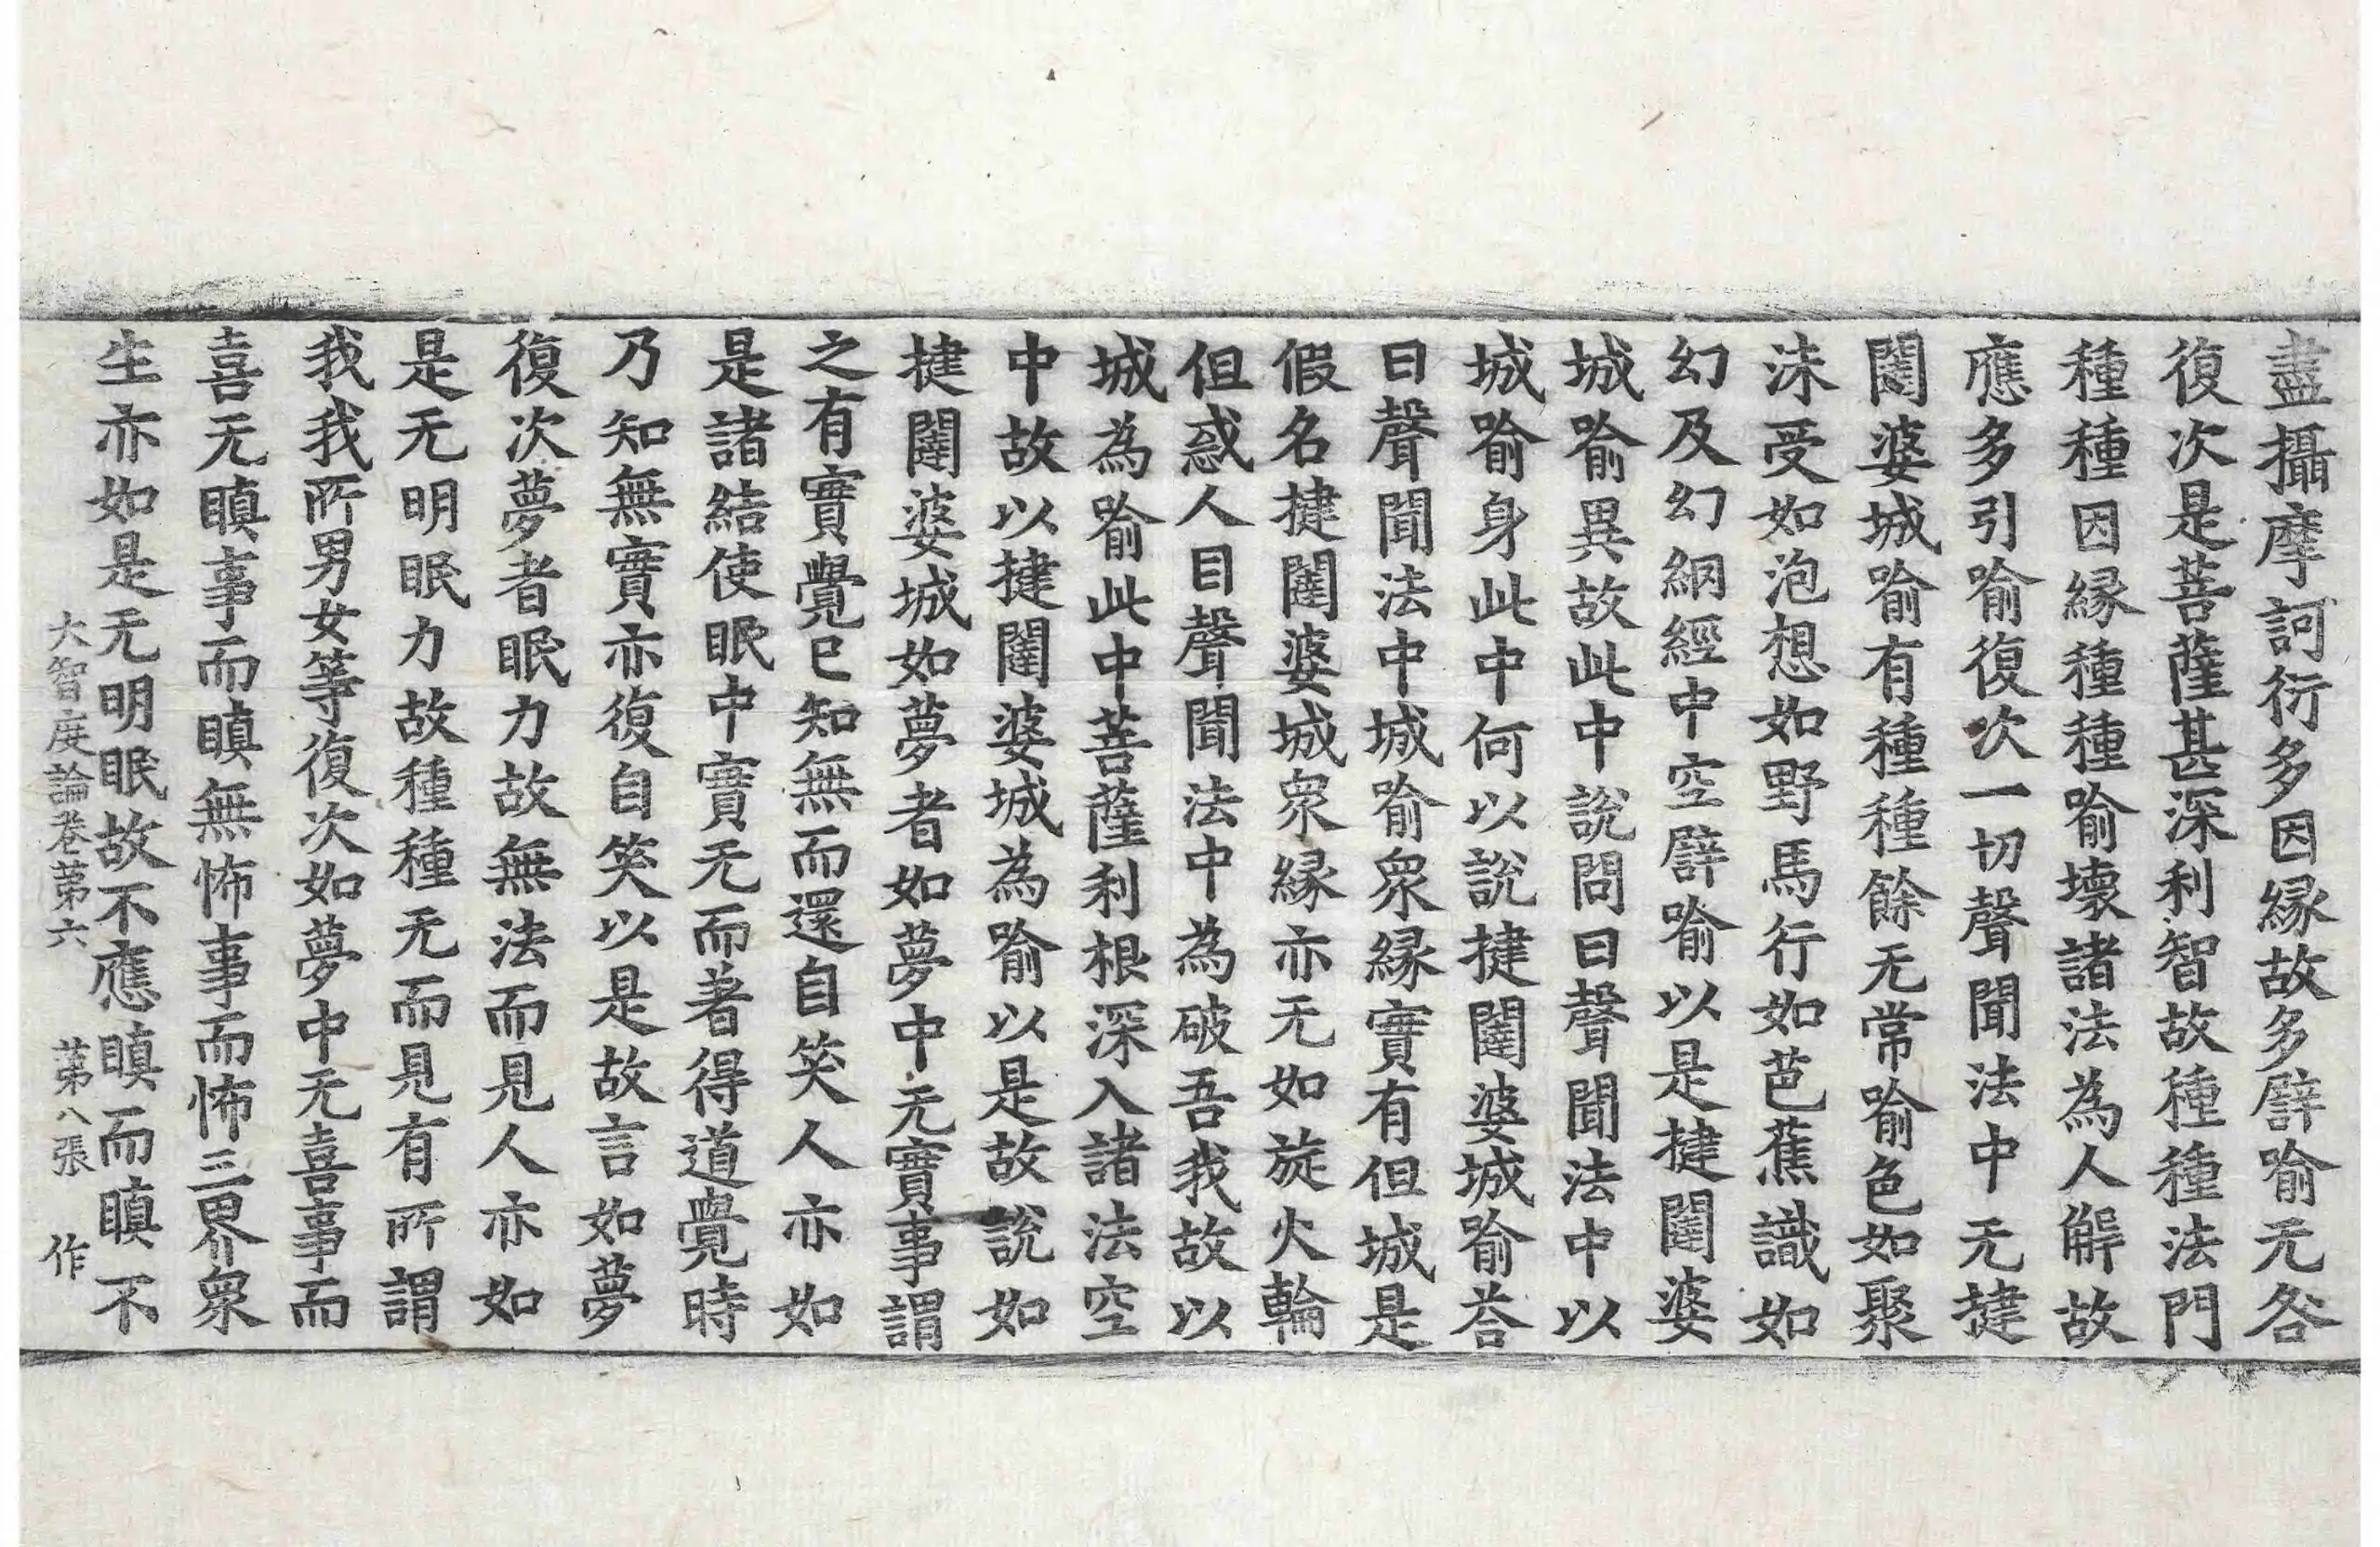 盡攝摩訶衍多因緣故多譬喻无咎
復次是菩薩甚深利智故種種法門
種種因緣種種喻壞諸法為人解故
應多引喻復次一切聲聞法中无揵
闥婆城喻有種種餘无常喻色如聚
沫受如泡想如野馬行如芭蕉識如
幻及幻網經中空譬喻以是揵闥婆
城喻異故此中說問曰聲聞法中以
城喻身此中何以說揵闥婆城喻荅
曰聲聞法中城喻衆緣實有但城是
假名揵闥婆城衆緣亦无如旋火輪
但惑人目聲聞法中為破吾我故以
城為喻此中菩薩利根深入諸法空
中故以揵闥婆城為喻以是故說如
揵闥婆城如夢者如夢中无實事謂
之有實覺已知無而還自笑人亦如
是諸結使眠中實无而著得道覺時
乃知無實亦復自笑以是故言如夢
復次夢者眠力故無法而見人亦如
是无明眠力故種種无而見有所謂
我我所男女等復次如夢中无喜事而
喜无瞋事而瞋無怖事而怖三界衆
生亦如是无明眠故不應瞋而瞋不
大智度論卷苐六 苐八張 作